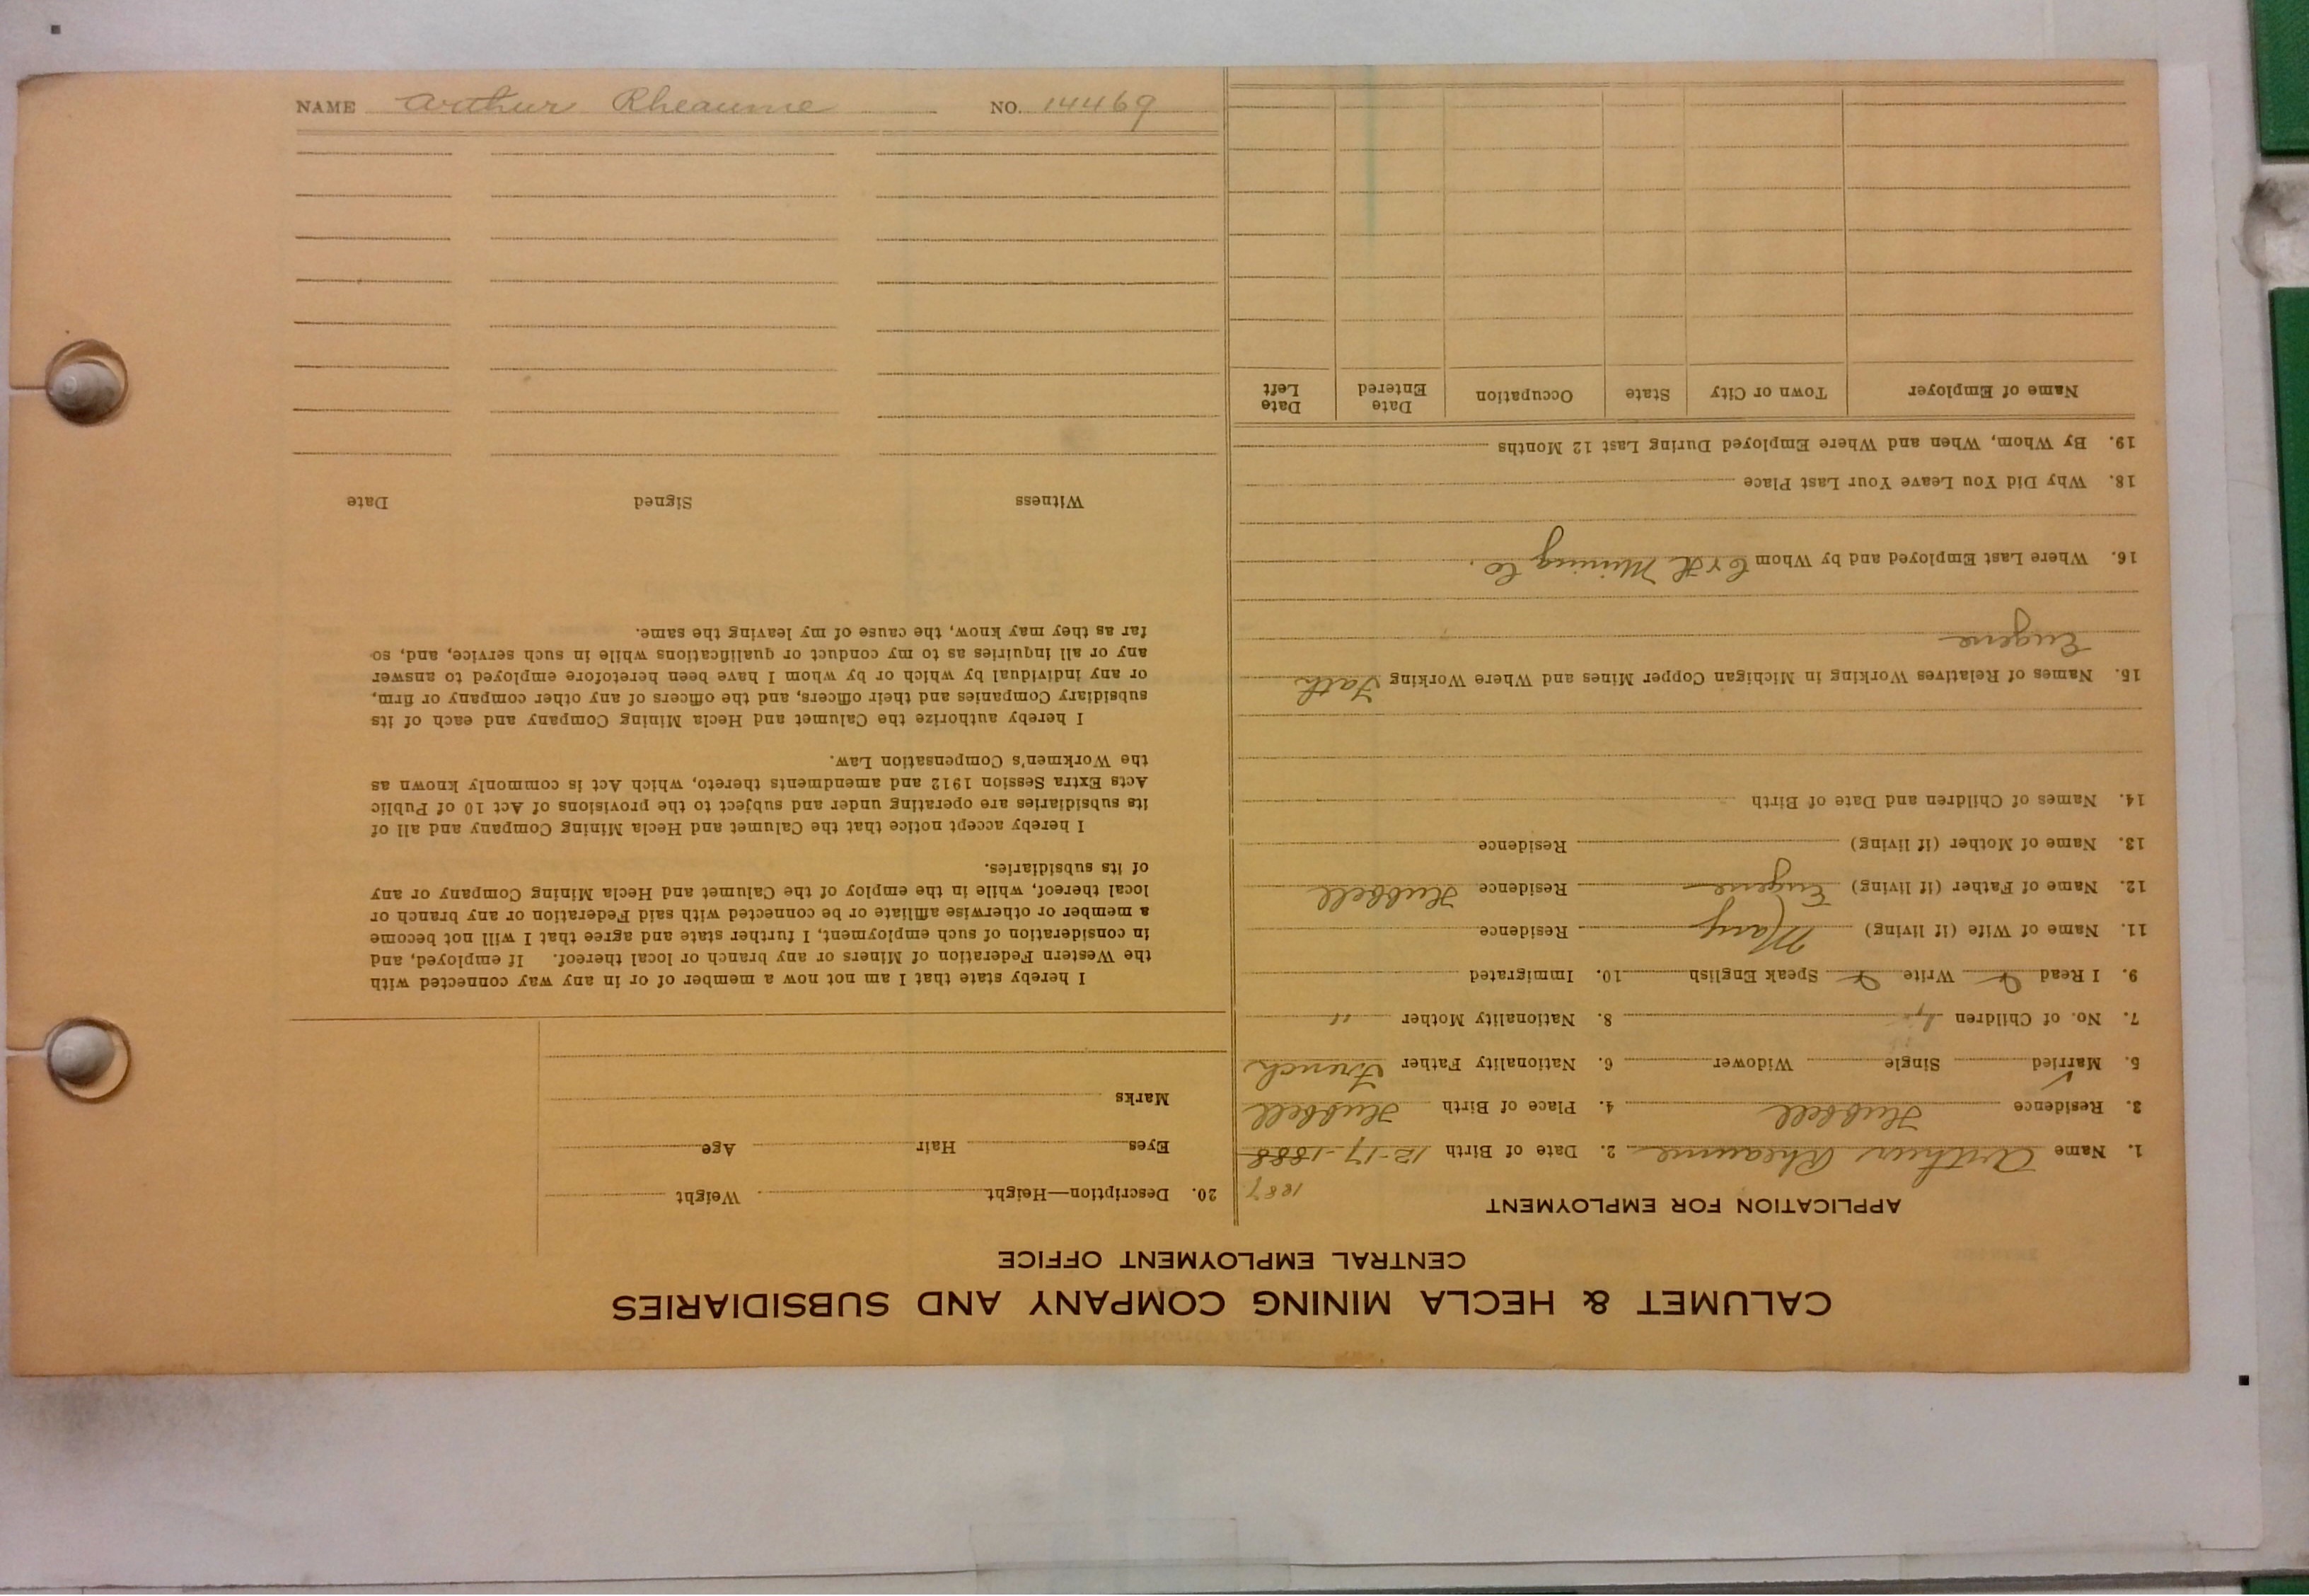 CALUMET & HECLA MINING COMPANY AND SUBSIDIARIES
CENTRAL EMPLOYMENT OFFICE
APPLICATION FOR EMPLOYMENT
1887
1. Name Arthur Rheaume 2. Date of Birth 12-17-1888
3. Residence Hubbell 4. Place of Birth Hubbell
5. Married ✓ Single Widower 6. Nationality Father French
7. No. of Children 8. Nationality Mother "
9. I Read Write Speak English 10. Immigrated
11. Name of Wife (if living) Mary Residence
12. Name of Father (if living) Eugene Residence Hubbell
13. Name of Mother (if living) Residence
14. Names of Children and Date of Birth
15. Names of Relatives Working in Michigan Copper Mines and Where Working Fath
Eugene
16. Where Last Employed and by Whom C & H Mining Co.
18. Why Did You Leave Your Last Place
19. By Whom, When and Where Employed During Last 12 Months
Name of Employer Town or City State Occupation Date Entered Date Left
20. Description—Height Weight
Eyes Hair Age
Marks
I hereby state that I am not now a member of or in any way connected with
the Western Federation of Miners or any branch or local thereof. If employed, and
in consideration of such employment, I further state and agree that I will not become
a member or otherwise affiliate or be connected with said Federation or any branch or
local thereof, while in the employ of the Calumet and Hecla Mining Company or any
of its subsidiaries.
I hereby accept notice that the Calumet and Hecla Mining Company and all of
its subsidiaries are operating under and subject to the provisions of Act 10 of Public
Acts Extra Session 1912 and amendments thereto, which Act is commonly known as
the Workmen's Compensation Law.
I hereby authorize the Calumet and Hecla Mining Company and each of its
subsidiary Companies and their officers, and the officers of any other company or firm,
or any individual by which or by whom I have been heretofore employed to answer
any or all inquiries as to my conduct or qualifications while in such service, and, so
far as they may know, the cause of my leaving the same.
Witness Signed Date
NAME Arthur Rheaume NO. 14469